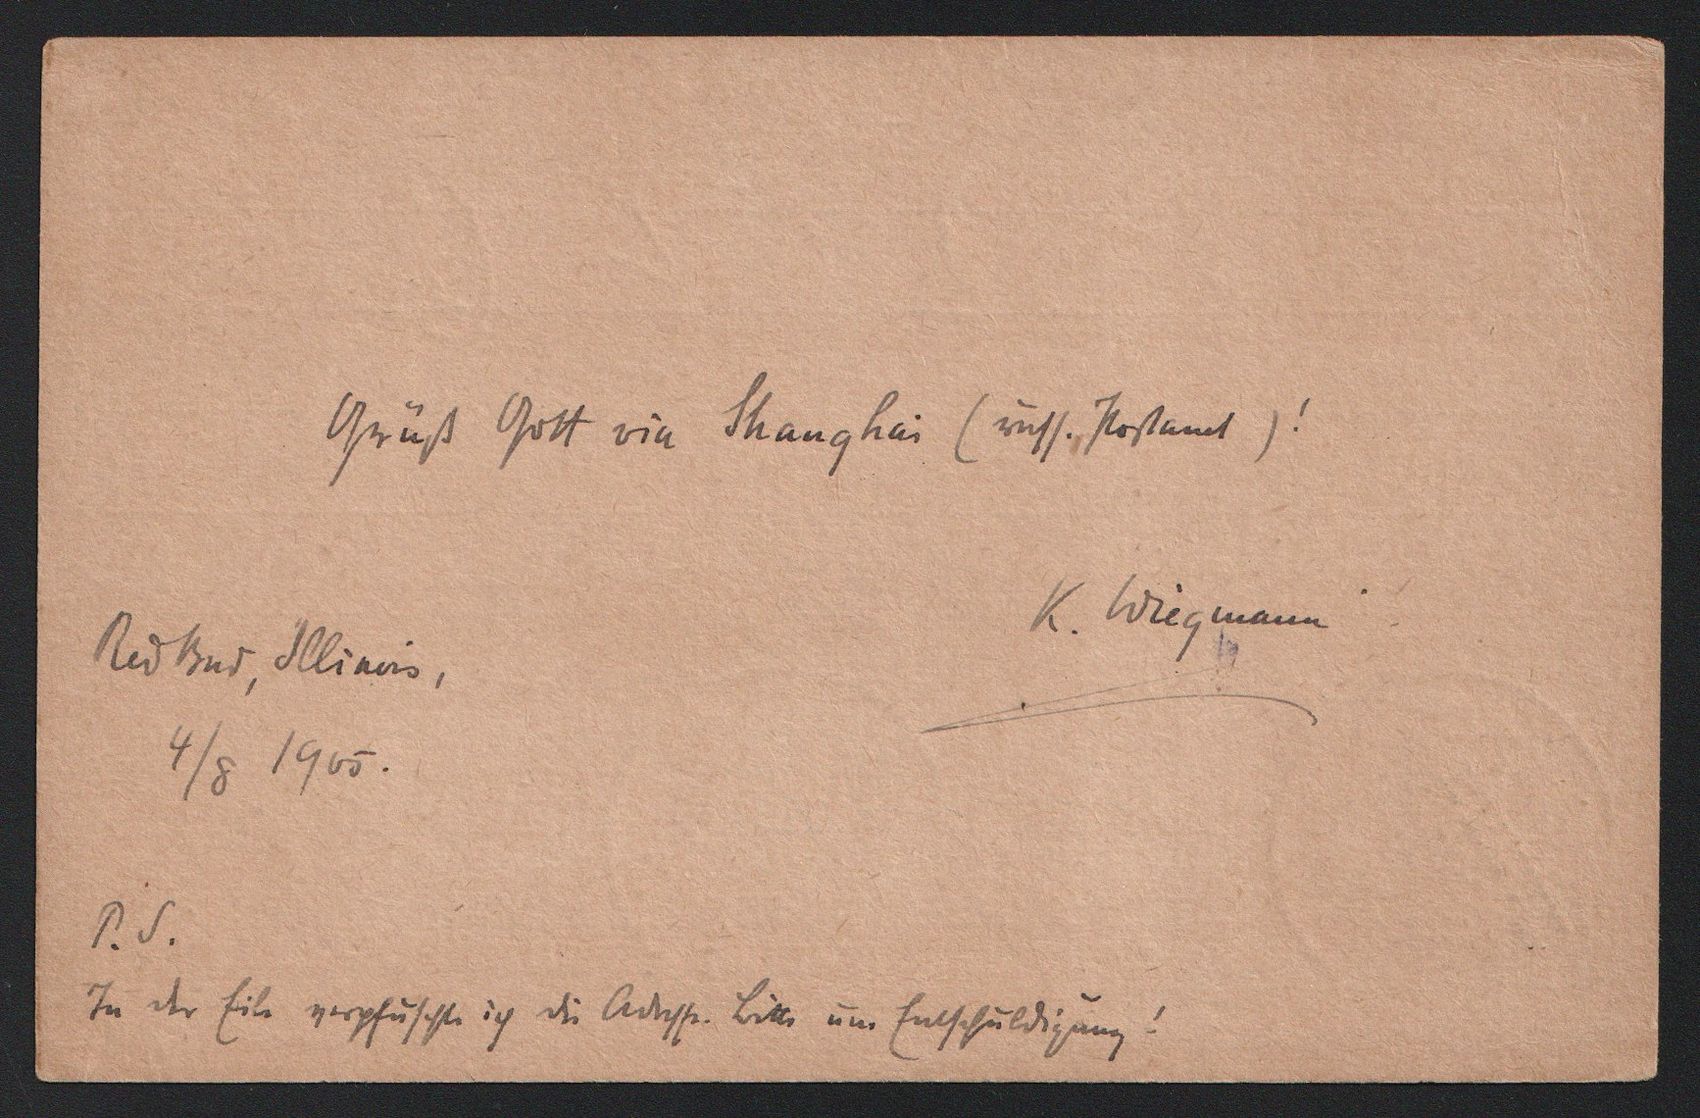 Grüß Gott via Shanghai (russ. Postamt)!
K. Wiegmann
Red Bud, Illinois,
4/8 1905.
P. S.
In der Eile verpfuschte ich die Adresse. Bitte um Entschuldigung!